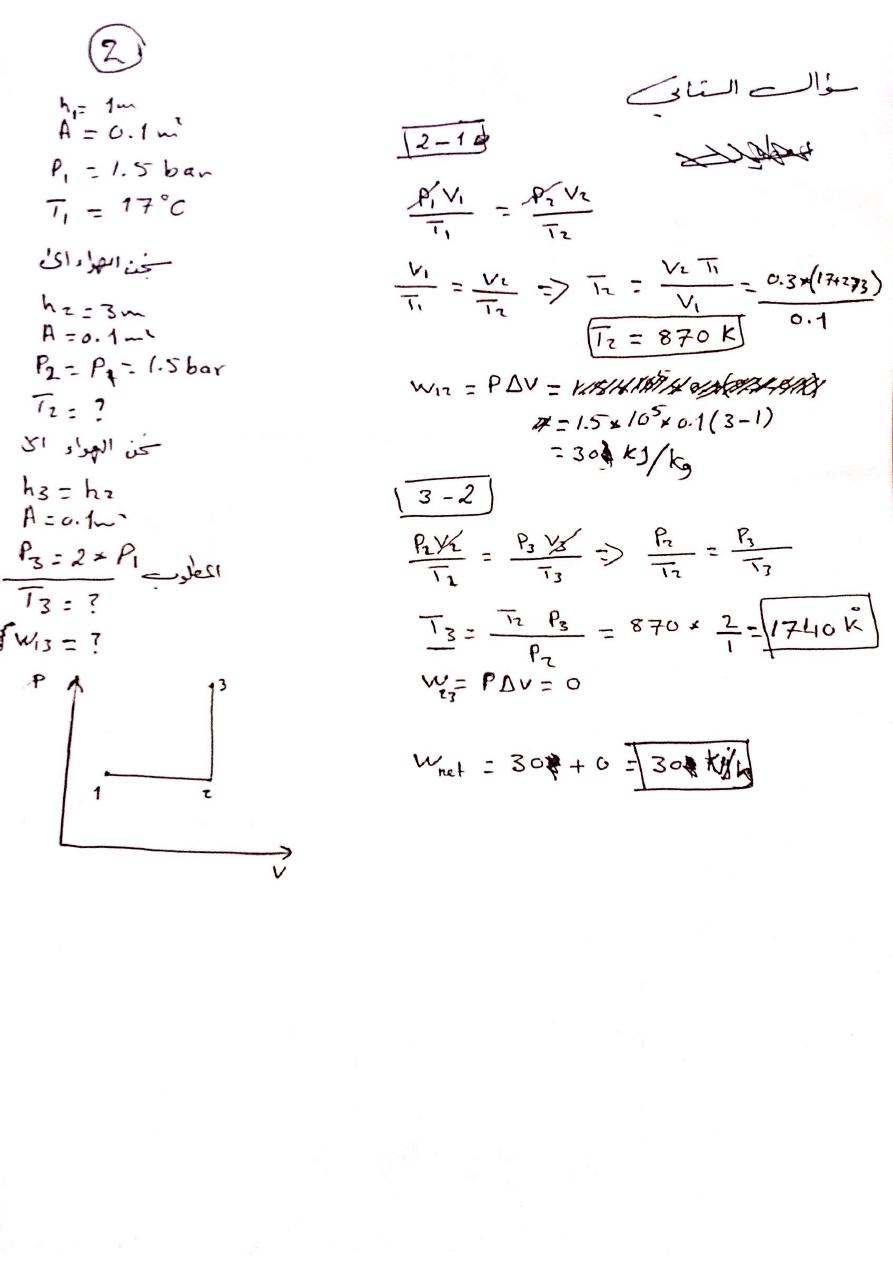 2
h₁ = 1m
A = 0.1 m²
P₁ = 1.5 bar
T₁ = 17°C
سخن الهواء الى
h₂ = 3m
A = 0.1 m²
P₂ = P₁ = 1.5 bar
T₂ = ?
سخن الهواء الا
h₃ = h₂
A = 0.1 m²
P₃ = 2 * P₁
المطلوب
T₃ = ?
W₁₃ = ?
P
3
1
2
V
سؤال الثاني
2-1
P₁ V₁ / T₁ = P₂ V₂ / T₂
V₁ / T₁ = V₂ / T₂ => T₂ = V₂ T₁ / V₁ = 0.3*(17+273) / 0.1
T₂ = 870 K
W₁₂ = P ΔV =
= 1.5 * 10⁵ * 0.1 (3-1)
= 30 kJ/kg
3-2
P₂ V₂ / T₂ = P₃ V₃ / T₃ => P₂ / T₂ = P₃ / T₃
T₃ = T₂ P₃ / P₂ = 870 * 2/1 = 1740 K°
W₂₃ = P ΔV = 0
W net = 30 + 0 = 30